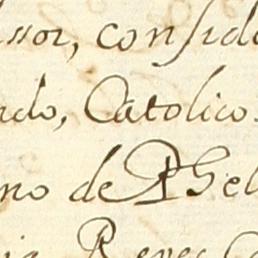 ssor, consid
ndo, Catolico
no de Phel
Reyes